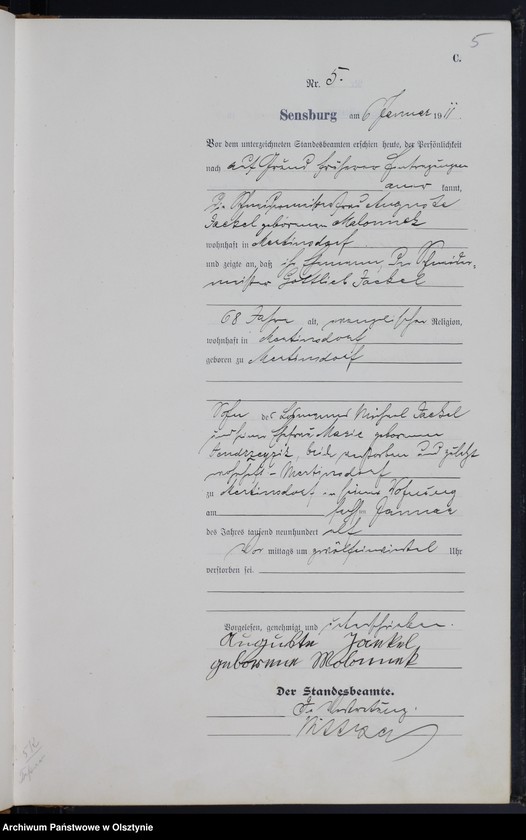 5
C.
Nr. 5.
Sensburg am 6 Januar 1911.
Vor dem unterzeichneten Standesbeamten erschien heute, der Persönlichkeit
nach auf Grund früherer Eintragungen
kannt,
die Schneidermeisterfrau Auguste
Jaekel geborene Molonnek
wohnhaft in Mertinsdorf
und zeigte an, daß ihr Ehemann, der Schneider-
meister Gottlieb Jaekel
68 Jahre alt, evangelischer Religion,
wohnhaft in Mertinsdorf
geboren zu Mertinsdorf
Sohn des Michael Jaekel
und seiner Ehefrau Marie geborenen
beide verstorben und zuletzt
wohnhaft in Mertinsdorf
zu Mertinsdorf in seiner Wohnung
am sechsten Januar
des Jahres tausend neunhundert elf
Vor mittags um Uhr
verstorben sei.
Vorgelesen, genehmigt und unterschrieben.
Auguste Jaekel
geborene Molonnek
Der Standesbeamte.
In Vertretung.
Archiwum Państwowe w Olsztynie